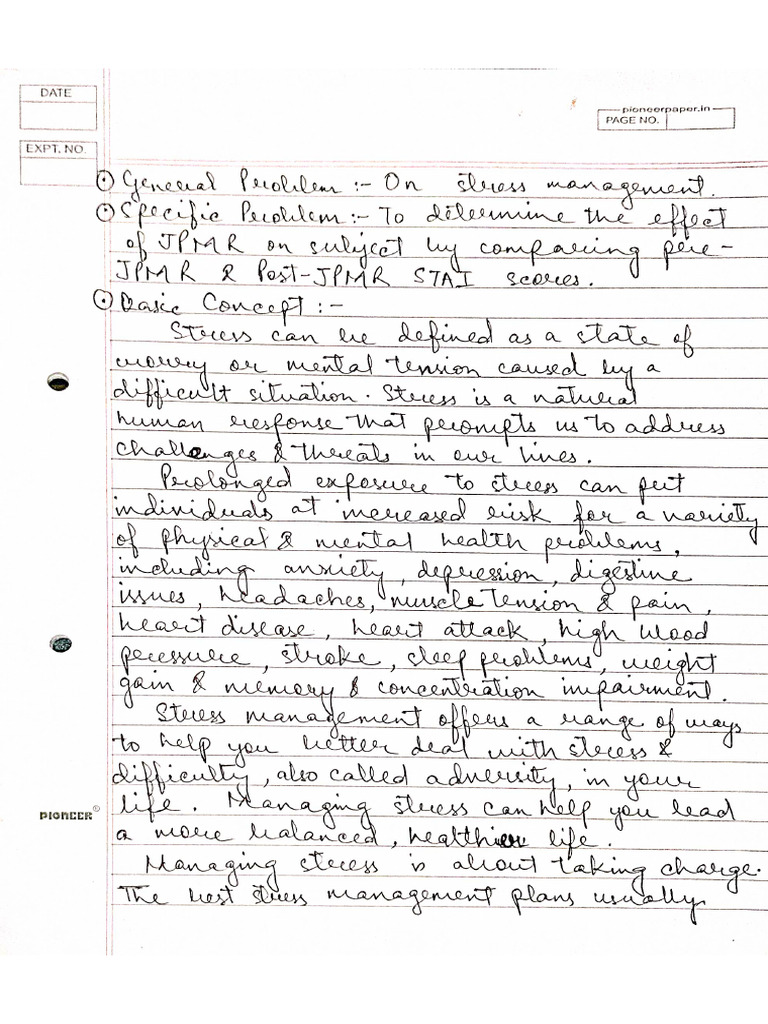 DATE
pioneerpaper.in
PAGE NO.
EXPT. NO.
General Problem :- On stress management.
Specific Problem :- To determine the effect
of JPMR on subject by comparing pre-
JPMR & Post-JPMR STAI scores.
Basic Concept :-
Stress can be defined as a state of
worry or mental tension caused by a
difficult situation. Stress is a natural
human response that prompts us to address
challenges & threats in our lives.
Prolonged exposure to stress can put
individuals at increased risk for a variety
of physical & mental health problems,
including anxiety, depression, digestive
issues, headaches, muscle tension & pain,
heart disease, heart attack, high blood
pressure, stroke, sleep problems, weight
gain & memory & concentration impairment.
Stress management offers a range of ways
to help you better deal with stress &
difficulty, also called adversity, in your
life. Managing stress can help you lead
PIONEER
a more balanced, healthier life.
Managing stress is about taking charge.
The best stress management plans usually